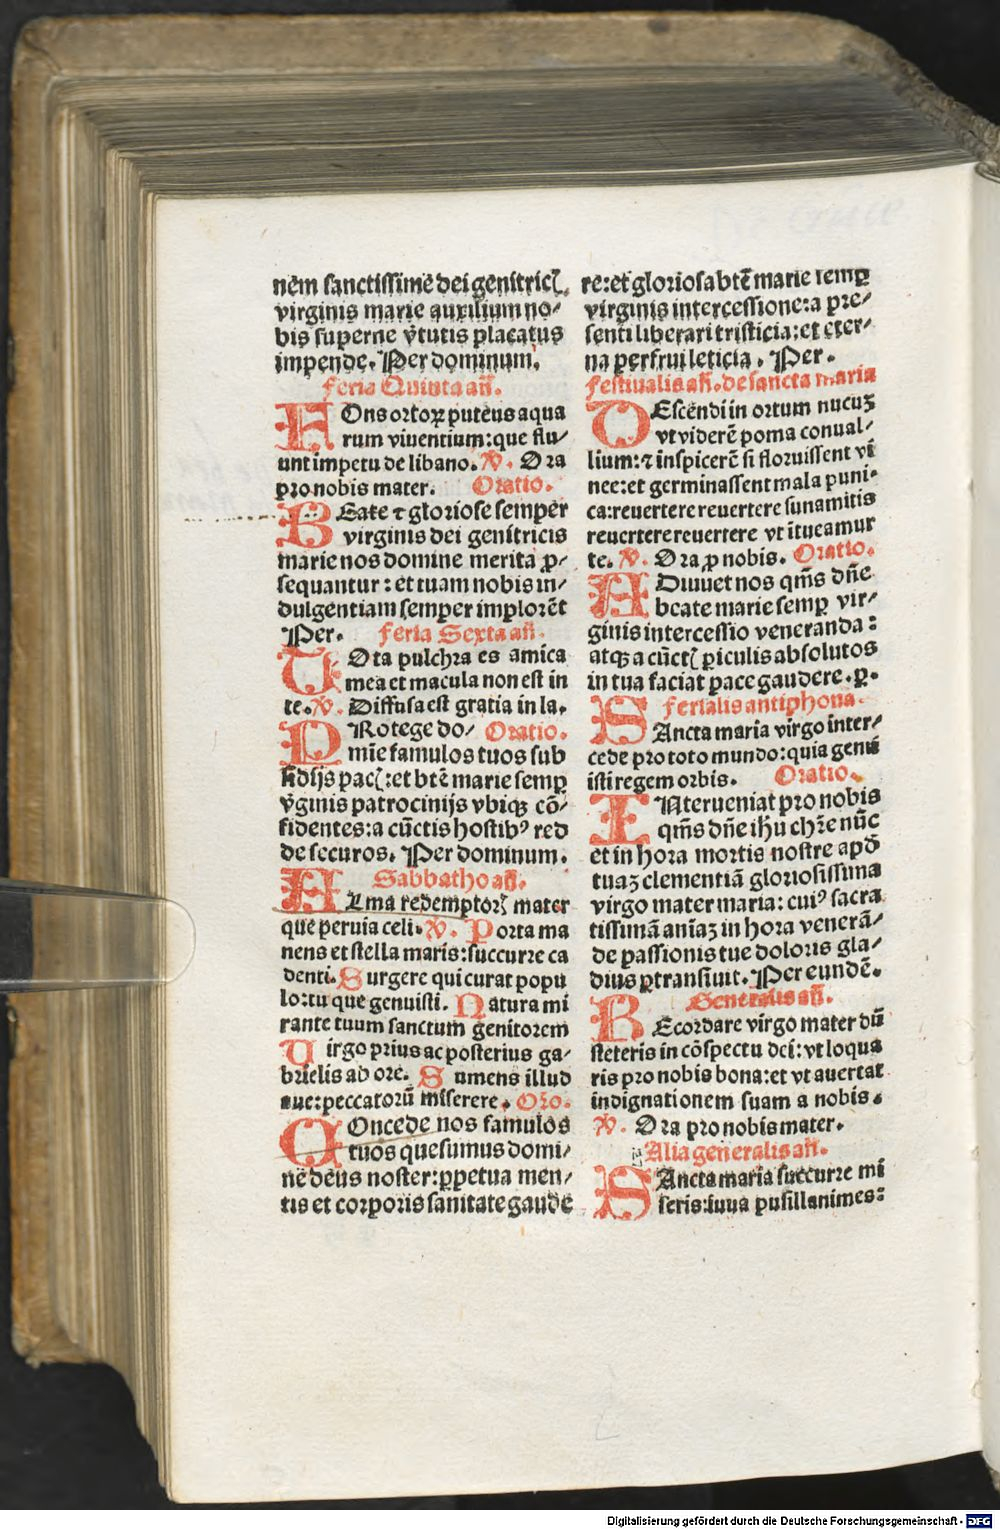 nem sanctissime dei genitricꝭ
virginis marie auxilium no⸗
bis superne v̾tutis placatus
impende. Per dominum.
Feria Quinta an̄.
FOns ortoꝝ puteus aqua
rum viuentium: que flu⸗
unt impetu de libano. V̄. Ora
pro nobis mater. Oratio.
BEate ⁊ gloriose semper
virginis dei genitricis
marie nos domine merita ꝓ⸗
sequantur: et tuam nobis in⸗
dulgentiam semper implorēt
Per. Feria Sexta an̄.
TOta pulchra es amica
mea et macula non est in
te. V̄. Diffusa est gratia in la.
PRotege do⸗ Oratio.
mīe famulos tuos sub
sidijs pacꝭ: et btē marie semꝑ
v̾ginis patrocinijs vbiqꝫ cō⸗
fidentes: a cūctis hostibꝰ red
de securos. Per dominum.
Sabbatho an̄.
ALma redemptorꝭ mater
que peruia celi. V̄. Porta ma
nens et stella maris: succurre ca
denti. Surgere qui curat popu
lo: tu que genuisti. Natura mi
rante tuum sanctum genitorem
Uirgo prius ac posterius ga⸗
brielis ab ore. Sumens illud
aue: peccatorū miserere. Oro.
COncede nos famulos
tuos quesumus domi⸗
ne deus noster: ꝑpetua men⸗
tis et corporis sanitate gaude
re: et gloriosa btē marie semꝑ
virginis intercessione: a pre⸗
senti liberari tristicia: et eter⸗
na perfrui leticia. Per.
Festiualis an̄. de sancta maria
DEscendi in ortum nucuꝫ
vt viderē poma conual⸗
lium: ⁊ inspicerē si floruissent vi
nee: et germinassent mala puni⸗
ca: reuertere reuertere sunamitis
reuertere reuertere vt ītueamur
te. V̄. Ora ꝓ nobis. Oratio.
ADiuuet nos qm̄s dn̄e
beate marie semꝑ vir⸗
ginis intercessio veneranda:
atqꝫ a cūctꝭ ꝑiculis absolutos
in tua faciat pace gaudere. ꝑ.
Ferialis antiphona.
SAncta maria virgo inter⸗
cede pro toto mundo: quia genu
isti regem orbis. Oratio.
INterueniat pro nobis
qm̄s dn̄e ihū chr̄e nūc
et in hora mortis nostre apd̄
tuaꝫ clementiā gloriosissima
virgo mater maria: cuiꝰ sacra
tissimā aīaꝫ in hora venerā⸗
de passionis tue doloris gla⸗
dius ꝑtransiuit. Per eundē.
Generalis an̄.
REcordare virgo mater dū
steteris in cōspectu dei: vt loqua
ris pro nobis bona: et vt auertat
indignationem suam a nobis.
V̄. Ora pro nobis mater.
Alia generalis an̄.
SAncta maria succurre mi
seris: iuua pusillanimes:
Digitalisierung gefördert durch die Deutsche Forschungsgemeinschaft - DFG